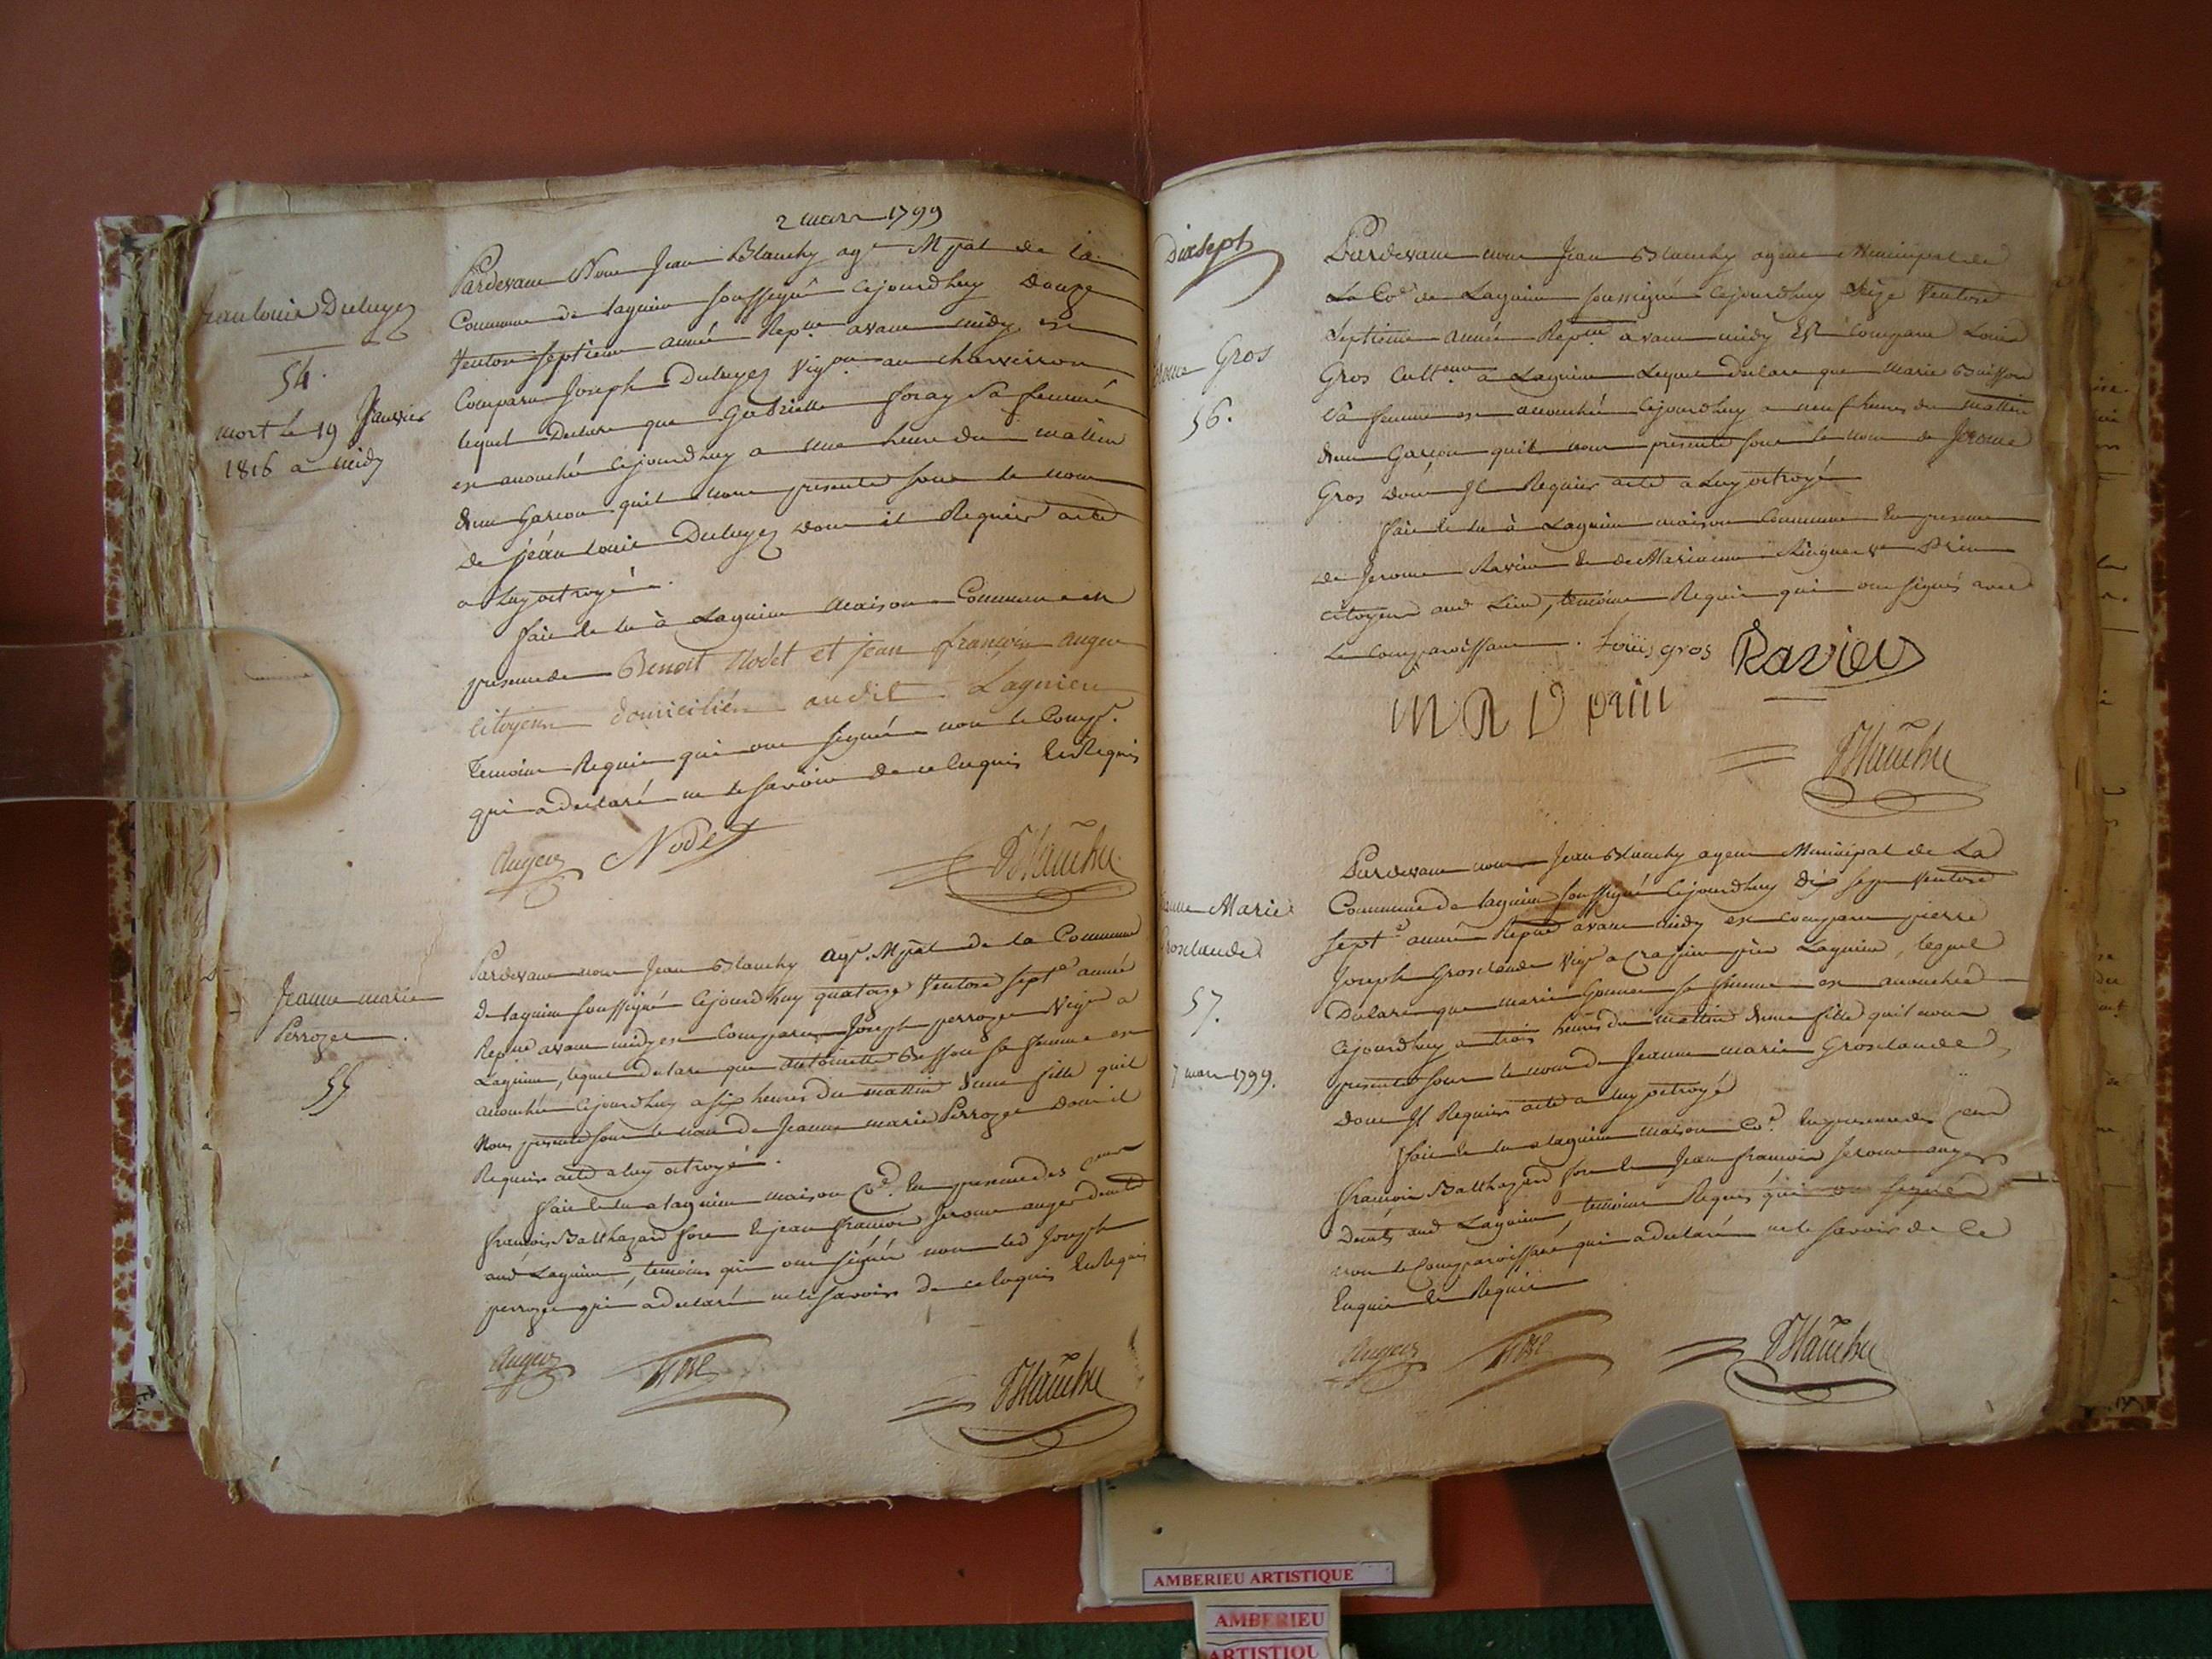 2 mars 1799
Pardevant Nous Jean Blanchy agt Mpal de la
Commune de Lagnieu soussigné cejourdhuy Douze
Ventose septieme année Repne avant midy est
Comparu Joseph Duluyez Vigon au charveyron
lequel Declare que Gabrielle foray Sa femme
est accouchée cejourdhuy a une heure du matin
dun Garcon quil nous presente sous le nom
de jean louis Duluyez dont il Requier acte
a luy octroyé.
fait & lu à Lagnieu maison Commune en
presence de Benoit Nodet et jean françois auger
citoyens domiciliés audit Lagnieu
Temoins Requis qui ont signé non le Compt.
qui a declaré ne le savoir de ce Enquis & Requis
Auger Nodet
Blanchy
jean louis Duluyez
54.
mort le 19 Janvier
1816 a midy
Pardevant nous Jean Blanchy agt. Mpal de la Commune
de lagnieu soussigné Cejourdhuy quatorze Ventose septe année
Repne avant midy est Comparu Joseph perrozet Vigr a
Lagnieu, lequel declare que antoinette Besson sa femme est
accouchée Cejourdhuy a six heures du mattin dune fille quil
Nous presente sous le nom de Jeanne marie Perrozet dont il
Requier acte a luy octroyé.
fait & lu a lagnieu maison Coe. En presence des Cens
françois Balthazard fore & jean francois Jerome auger
aud Lagnieu, temoins qui ont signé non led Joseph
perrozet qui a declaré ne le savoir de ce Enquis & Requis
Auger fore
Blanchy
Jeanne marie
Perrozet.
55
Dixsept
Pardevant nous Jean Blanchy agent Municipal de
La Coe de Lagnieu soussigné Cejourdhuy Seize Ventose
Septieme année Repne avant midy Est Comparu Louis
Gros Culteur a Lagnieu Lequel declare que marie Buisson
Sa femme est accouchée Cejourdhuy a neuf heures du mattin
dun Garçon quil nous presente sous le nom de Jerome
Gros dont Il Requier acte a Luy octroyé
fait & lu à Lagnieu maison Commune En presence
de Jerome Ravier & de Marianne ve Prin
citoyens aud Lieu, temoins Requis qui ont signés avec
Le comparoissant. Loüis gros Ravier
M R V prin
Blanchy
Jerome Gros
56.
Pardevant nous Jean Blanchy agent Municipal de La
Commune de lagnieu soussigné Cejourdhuy Dix sept Ventose
septe année Repne avant midy est comparu pierre
Joseph Grosclaude Vigr a près Lagnieu, lequel
Declare que marie sa femme est accouchée
Cejourdhuy a trois heures du mattin dune fille quil nous
presente sous le nom de Jeanne marie Grosclaude
dont Il Requier acte a luy octroyé
fait & lu a lagnieu maison Coe. En presence des Cens
francois Balthazard fore & Jean francois Jerome auger
aud Lagnieu, temoins Requis qui ont signés
non le Comparoissant qui a declaré ne le savoir de Ce
Enquis & Requis
Auger fore Blanchy
Jeanne Marie
Grosclaude
57.
7 mars 1799.
AMBERIEU ARTISTIQUE
AMBERIEU
ARTISTIQU